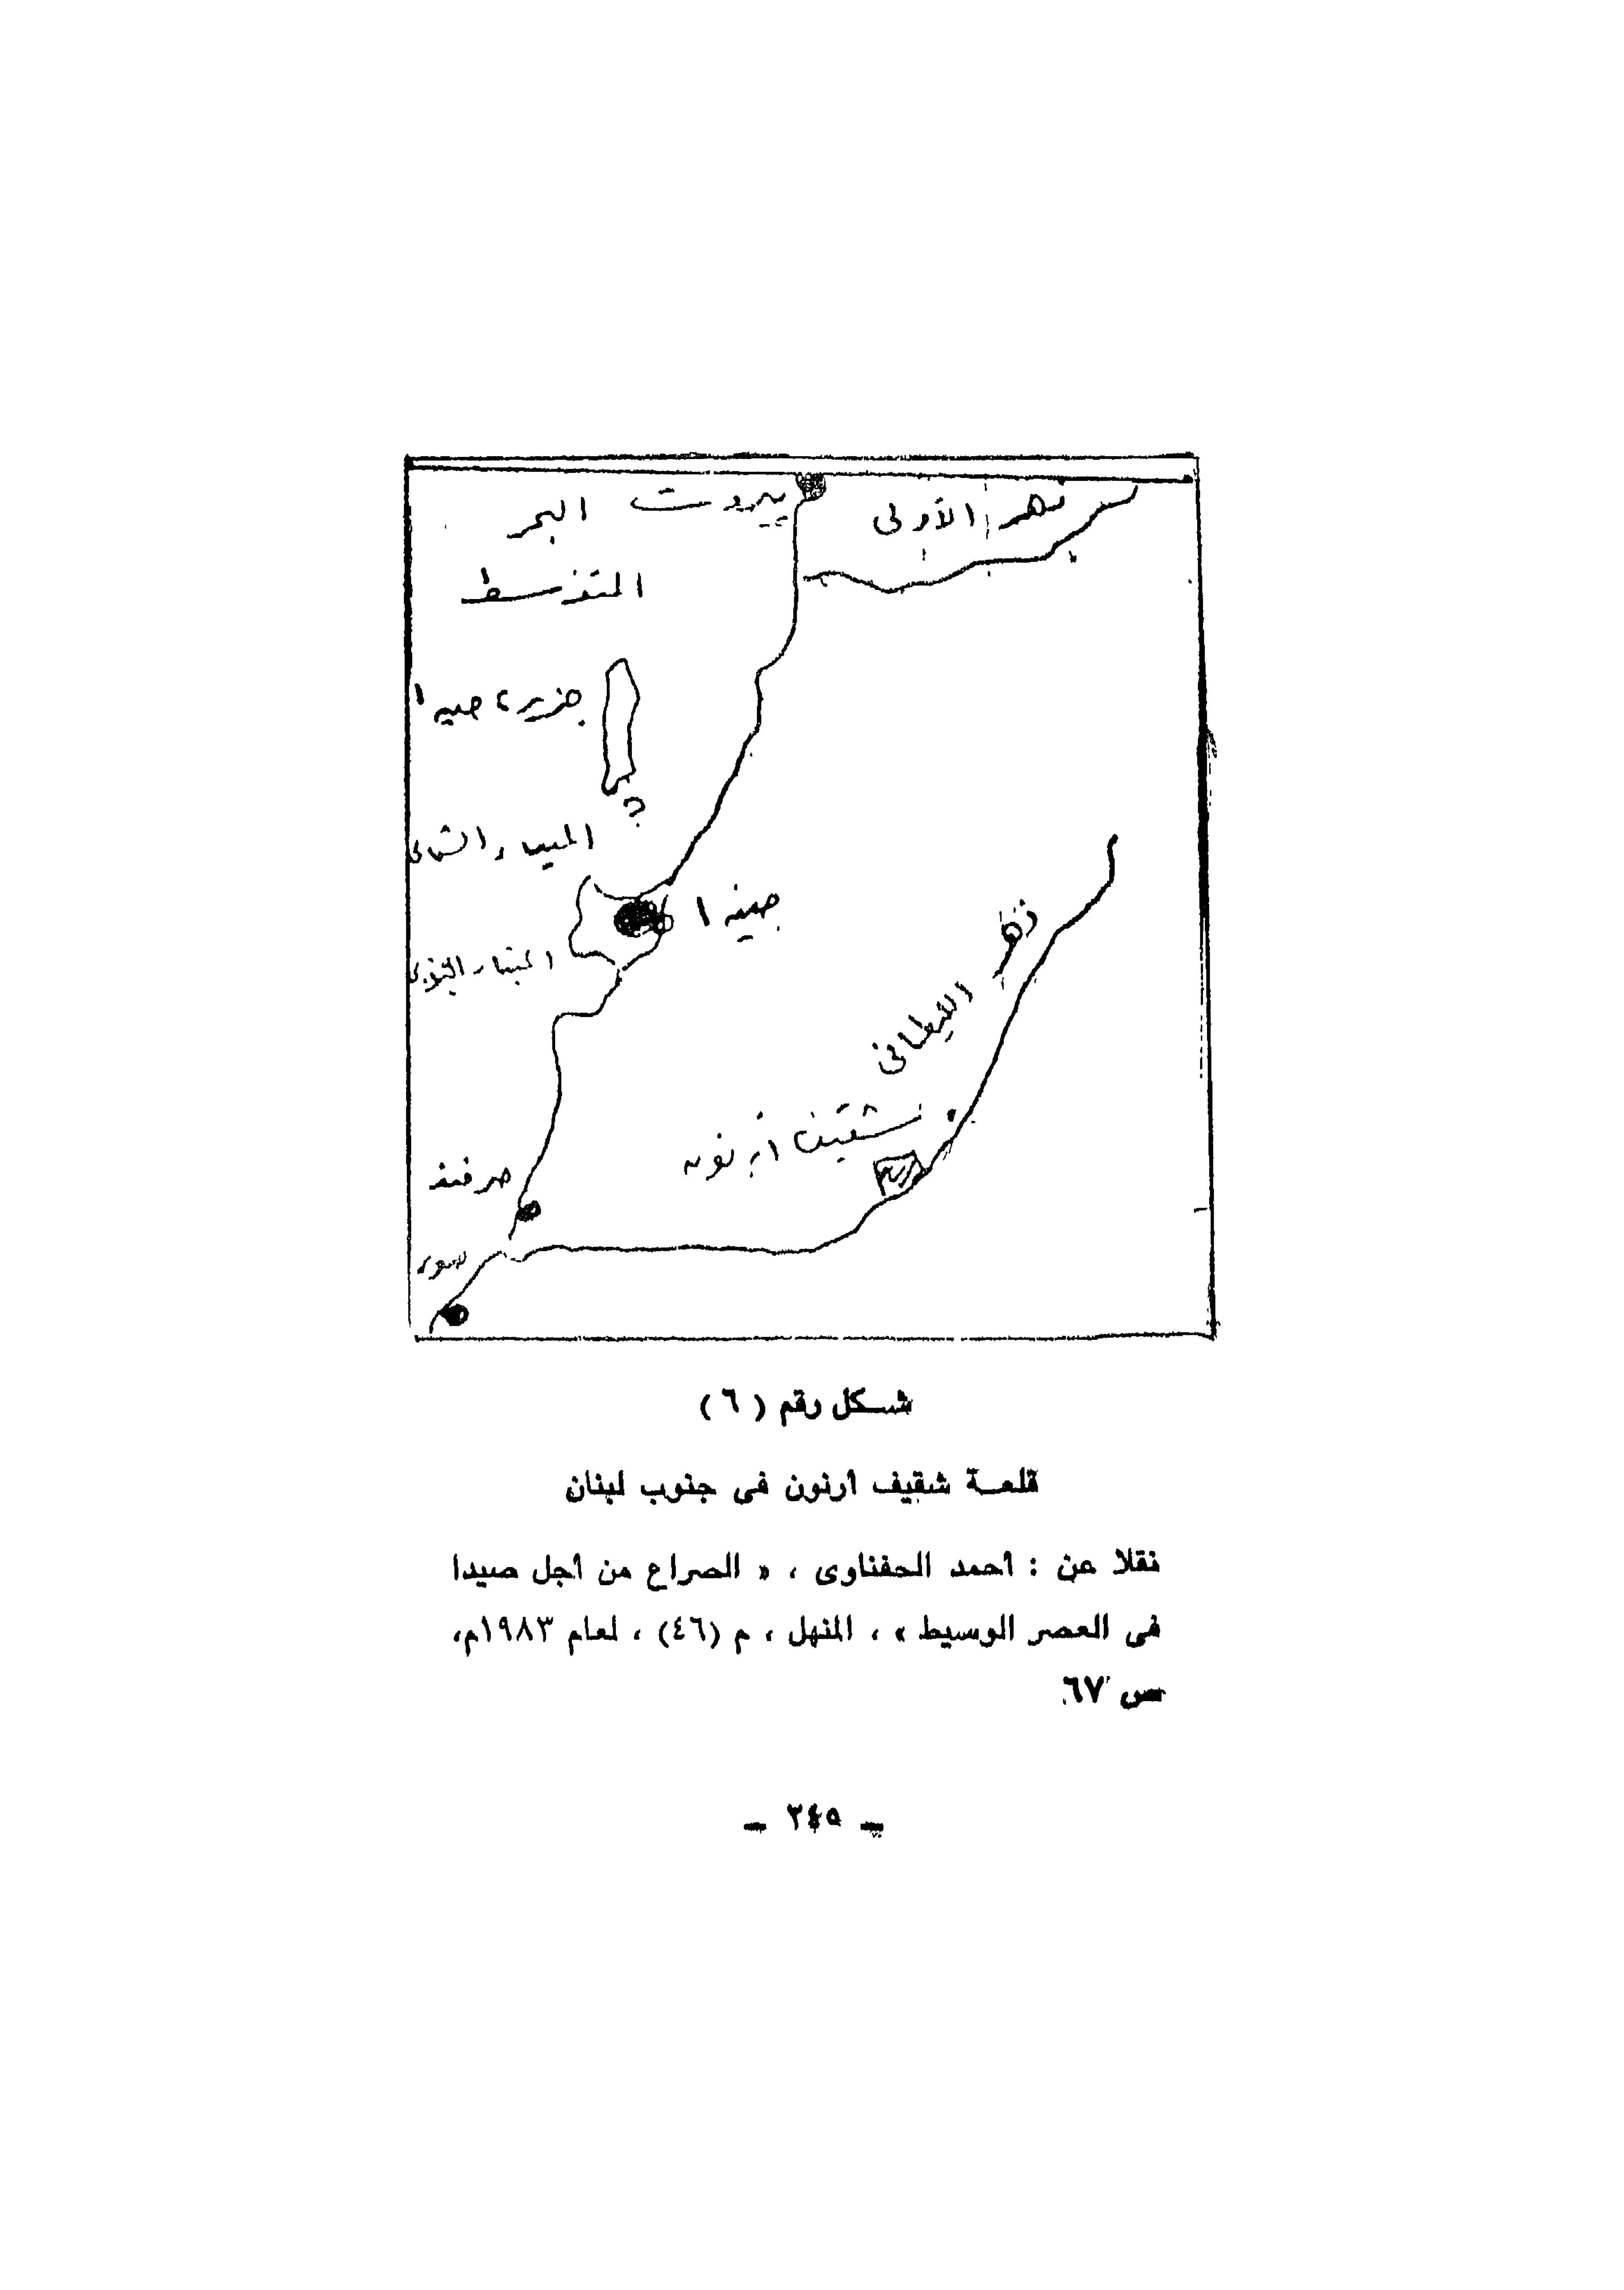 بيروت
نهر الأولى
البحر
المتوسط
جزيرة صيدا
؟
الميناء الشمالى
صيدا
الميناء الجنوبى
نهر
الليطانى
شقيف أرنون
صرفند
صور
شكل رقم ( ٦ )
قلعة شقيف أرنون فى جنوب لبنان
نقلا عن : أحمد الحفناوى ، « الصراع من أجل صيدا
فى العصر الوسيط » ، المنهل ، م (٤٦) ، لعام ١٩٨٣م،
ص ٦٧
ــ ٣٤٥ ــ